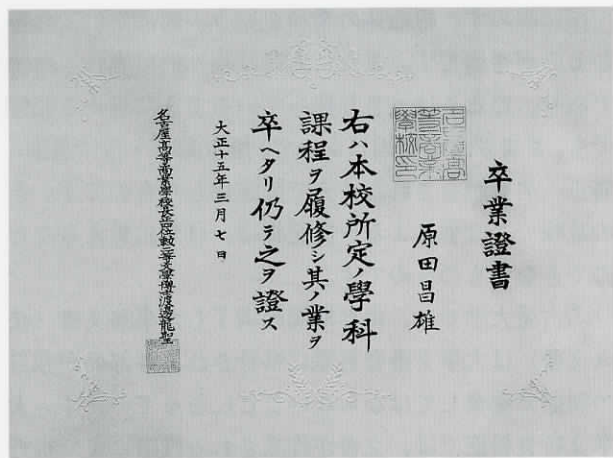 卒業證書
原田昌雄
右ハ本校所定ノ學科
課程ヲ履修シ其ノ業ヲ
卒ヘタリ仍テ之ヲ證ス
大正十五年三月七日
名古屋高等商業學校長 勲三等 渡邊龍聖